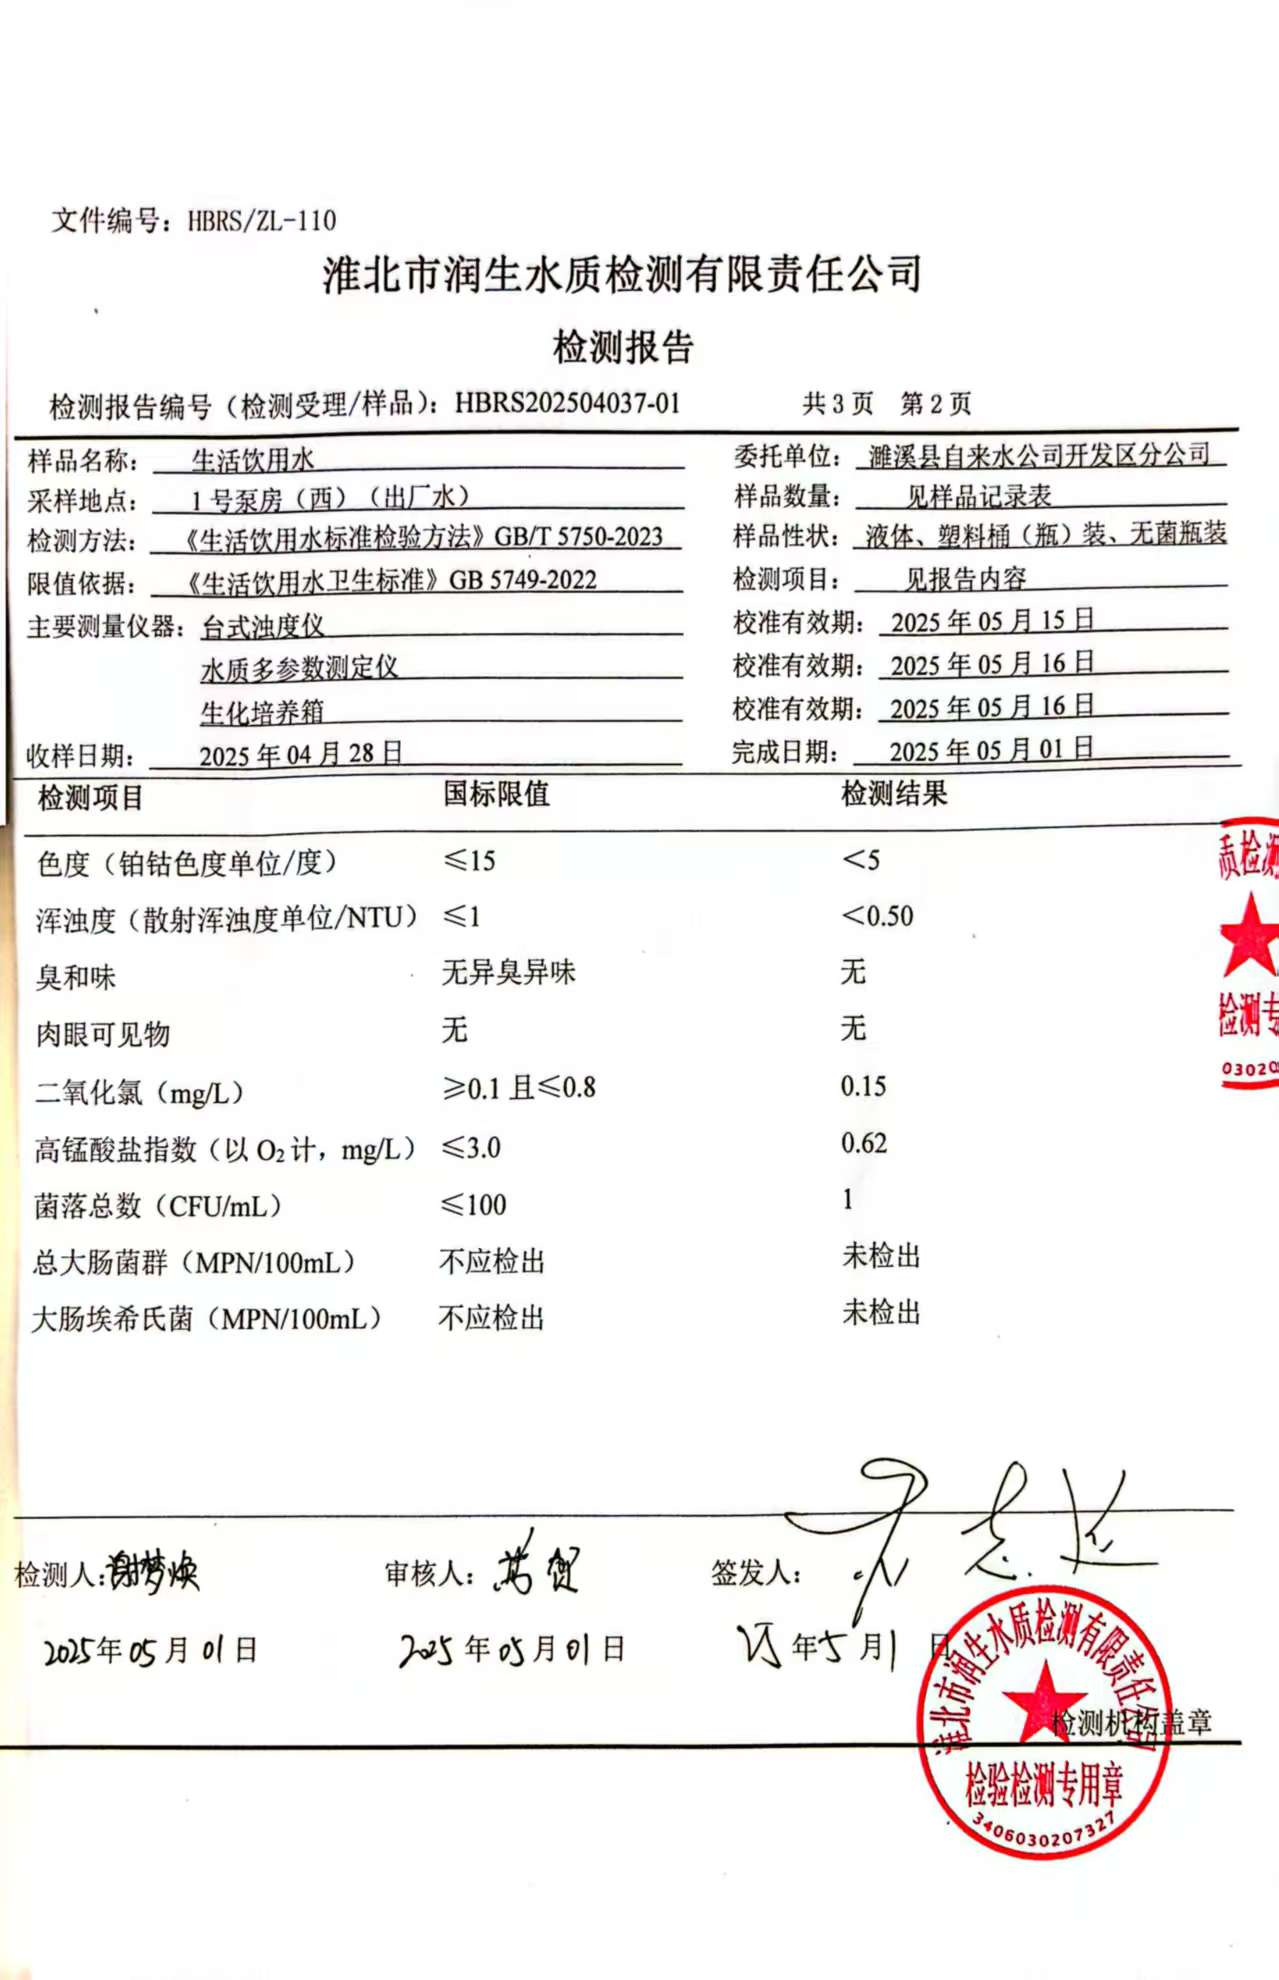 文件编号：HBRS/ZL-110
淮北市润生水质检测有限责任公司
检测报告
检测报告编号（检测受理/样品）：HBRS202504037-01 共3页 第2页
样品名称： 生活饮用水 委托单位： 濉溪县自来水公司开发区分公司
采样地点： 1号泵房（西）（出厂水） 样品数量： 见样品记录表
检测方法： 《生活饮用水标准检验方法》GB/T 5750-2023 样品性状： 液体、塑料桶（瓶）装、无菌瓶装
限值依据： 《生活饮用水卫生标准》GB 5749-2022 检测项目： 见报告内容
主要测量仪器： 台式浊度仪 校准有效期： 2025年05月15日
水质多参数测定仪 校准有效期： 2025年05月16日
生化培养箱 校准有效期： 2025年05月16日
收样日期： 2025年04月28日 完成日期： 2025年05月01日
检测项目 国标限值 检测结果
色度（铂钴色度单位/度） ≤15 <5
浑浊度（散射浑浊度单位/NTU） ≤1 <0.50
臭和味 无异臭异味 无
肉眼可见物 无 无
二氧化氯（mg/L） ≥0.1且≤0.8 0.15
高锰酸盐指数（以O₂计，mg/L） ≤3.0 0.62
菌落总数（CFU/mL） ≤100 1
总大肠菌群（MPN/100mL） 不应检出 未检出
大肠埃希氏菌（MPN/100mL） 不应检出 未检出
质检测
检测专
03020
检测人：谢梦焕 审核人： 签发人：
2025年05月01日 2025年05月01日 25年5月1日
淮北市润生水质检测有限责任公司
检测机构盖章
检验检测专用章
3406030207327